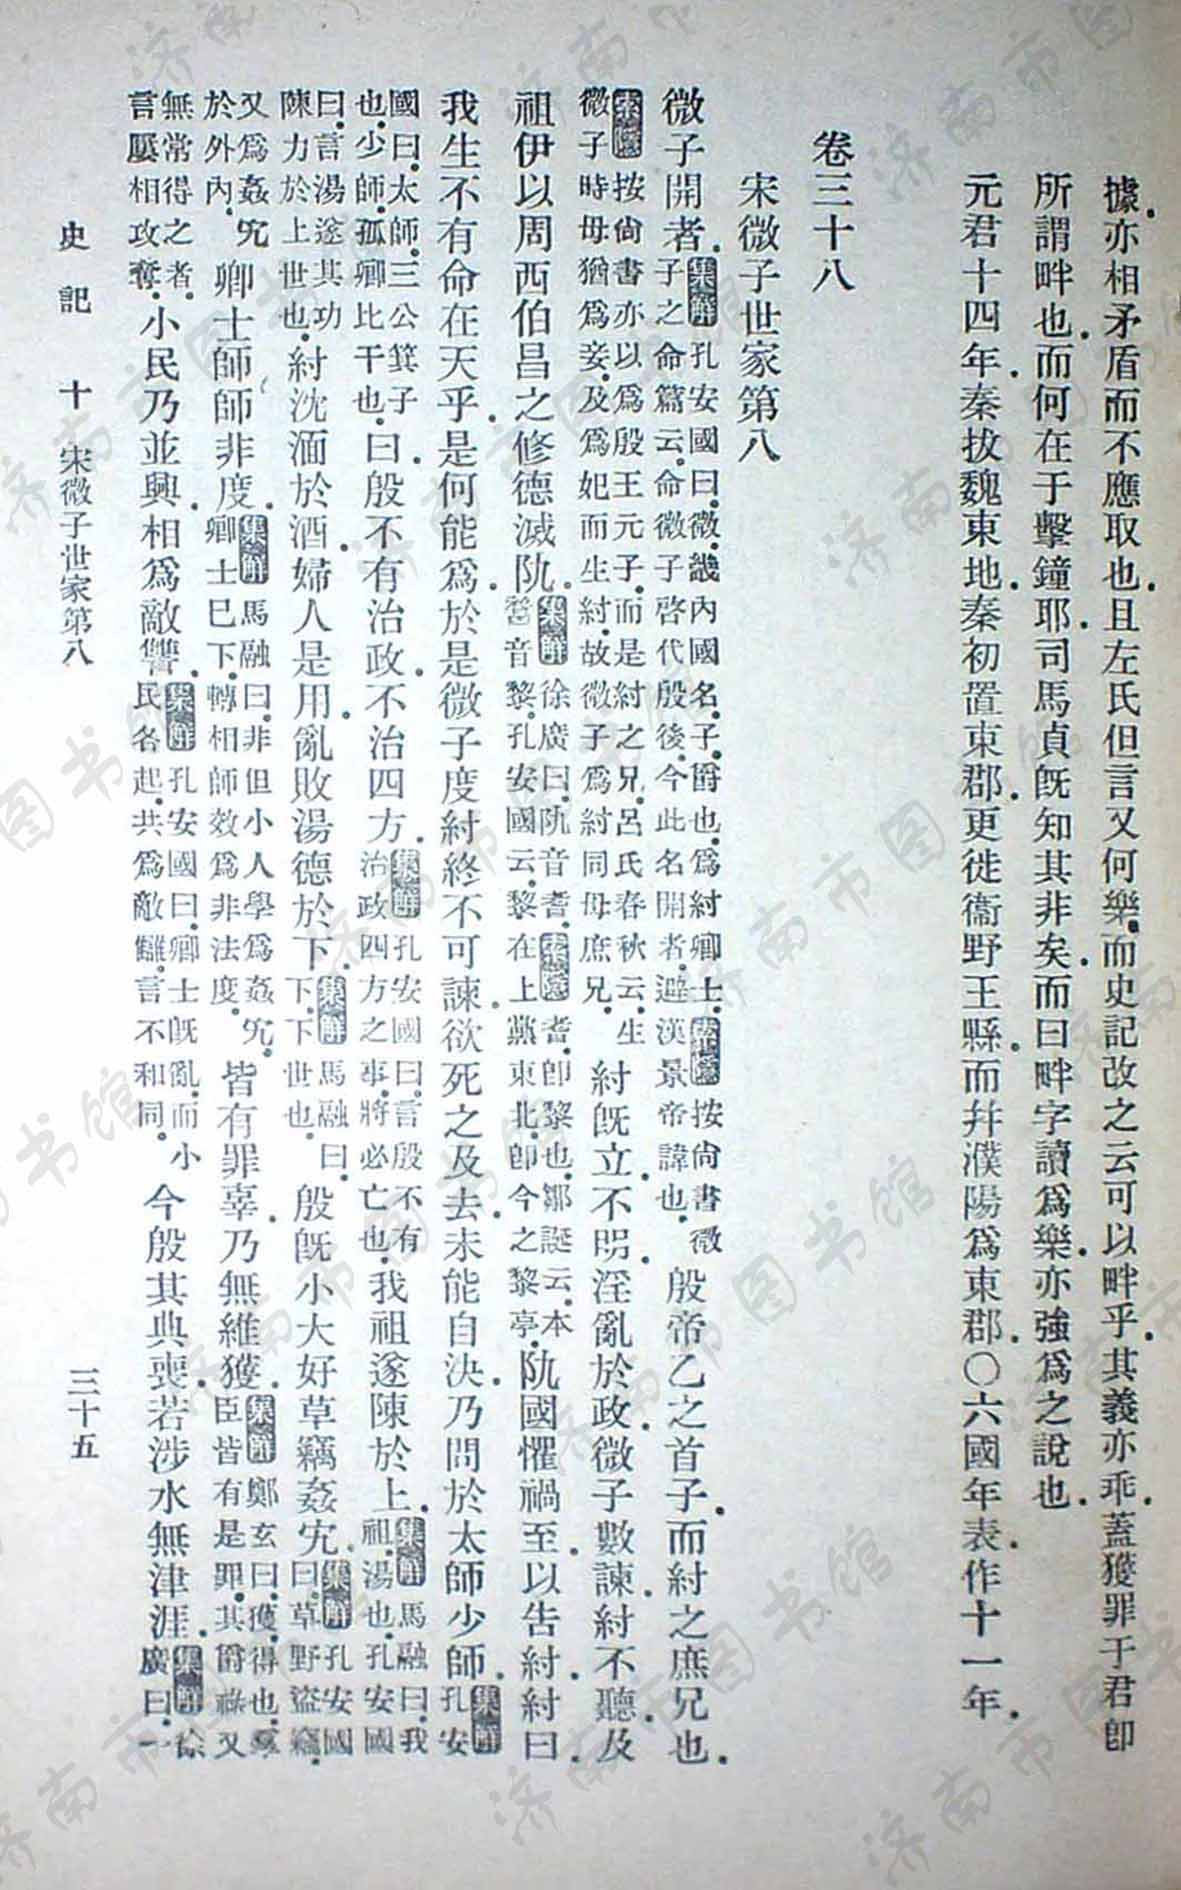 據。亦相矛盾而不應取也。且左氏但言又何樂。而史記改之云可以畔乎。其義亦乖。蓋獲罪于君卽
所謂畔也。而何在于擊鐘耶。司馬貞旣知其非矣。而曰畔字讀爲樂。亦強爲之說也。
元君十四年。秦拔魏東地。秦初置東郡。更徙衞野王縣。而幷濮陽爲東郡。○六國年表。作十一年。
卷三十八
宋微子世家第八
微子開者。集解孔安國曰。微。畿內國名。子。爵也。爲紂卿士。索隱按尙書微子之命篇云。命微子啓代殷後。今此名開者。避漢景帝諱也。殷帝乙之首子。而紂之庶兄也。
索隱按尙書亦以爲殷王元子。而是紂之兄。呂氏春秋云。生微子時母猶爲妾。及爲妃而生紂。故微子爲紂同母庶兄。紂旣立。不明。淫亂於政。微子數諫。紂不聽。及
祖伊以周西伯昌之修德滅阢。集解徐廣曰。阢音耆。索隱耆。卽黎也。鄒誕云。本音黎。孔安國云。黎在上黨東北。卽今之黎亭。阢國懼禍至。以告紂。紂曰。
我生不有命在天乎。是何能爲。於是微子度紂終不可諫。欲死之。及去。未能自決。乃問於太師少師。集解孔安
國曰。太師。三公箕子也。少師。孤卿比干也。曰。殷不有治政。不治四方。集解孔安國曰。言殷不有治政四方之事。將必亡也。我祖遂陳於上。集解馬融曰。我祖。湯也。孔安國
曰。言湯遂其功陳力於上世也。紂沈湎於酒。婦人是用。亂敗湯德於下。集解馬融曰。下。下世也。殷旣小大好草竊姦宄。集解孔安國曰。草野盜竊。
又爲姦宄於外內。卿士師師非度。集解馬融曰。非但小人學爲姦宄。卿士巳下。轉相師效爲非法度。皆有罪辜。乃無維獲。集解鄭玄曰。獲。得也。羣臣皆有是罪。其爵祿又
無常得之者。言屢相攻奪。小民乃並興。相爲敵讐。集解孔安國曰。卿士旣亂。而小民各起。共爲敵讎。言不和同。今殷其典喪。若涉水無津涯。集解徐廣曰。一
史記 十 宋微子世家第八 三十五
济南市图书馆